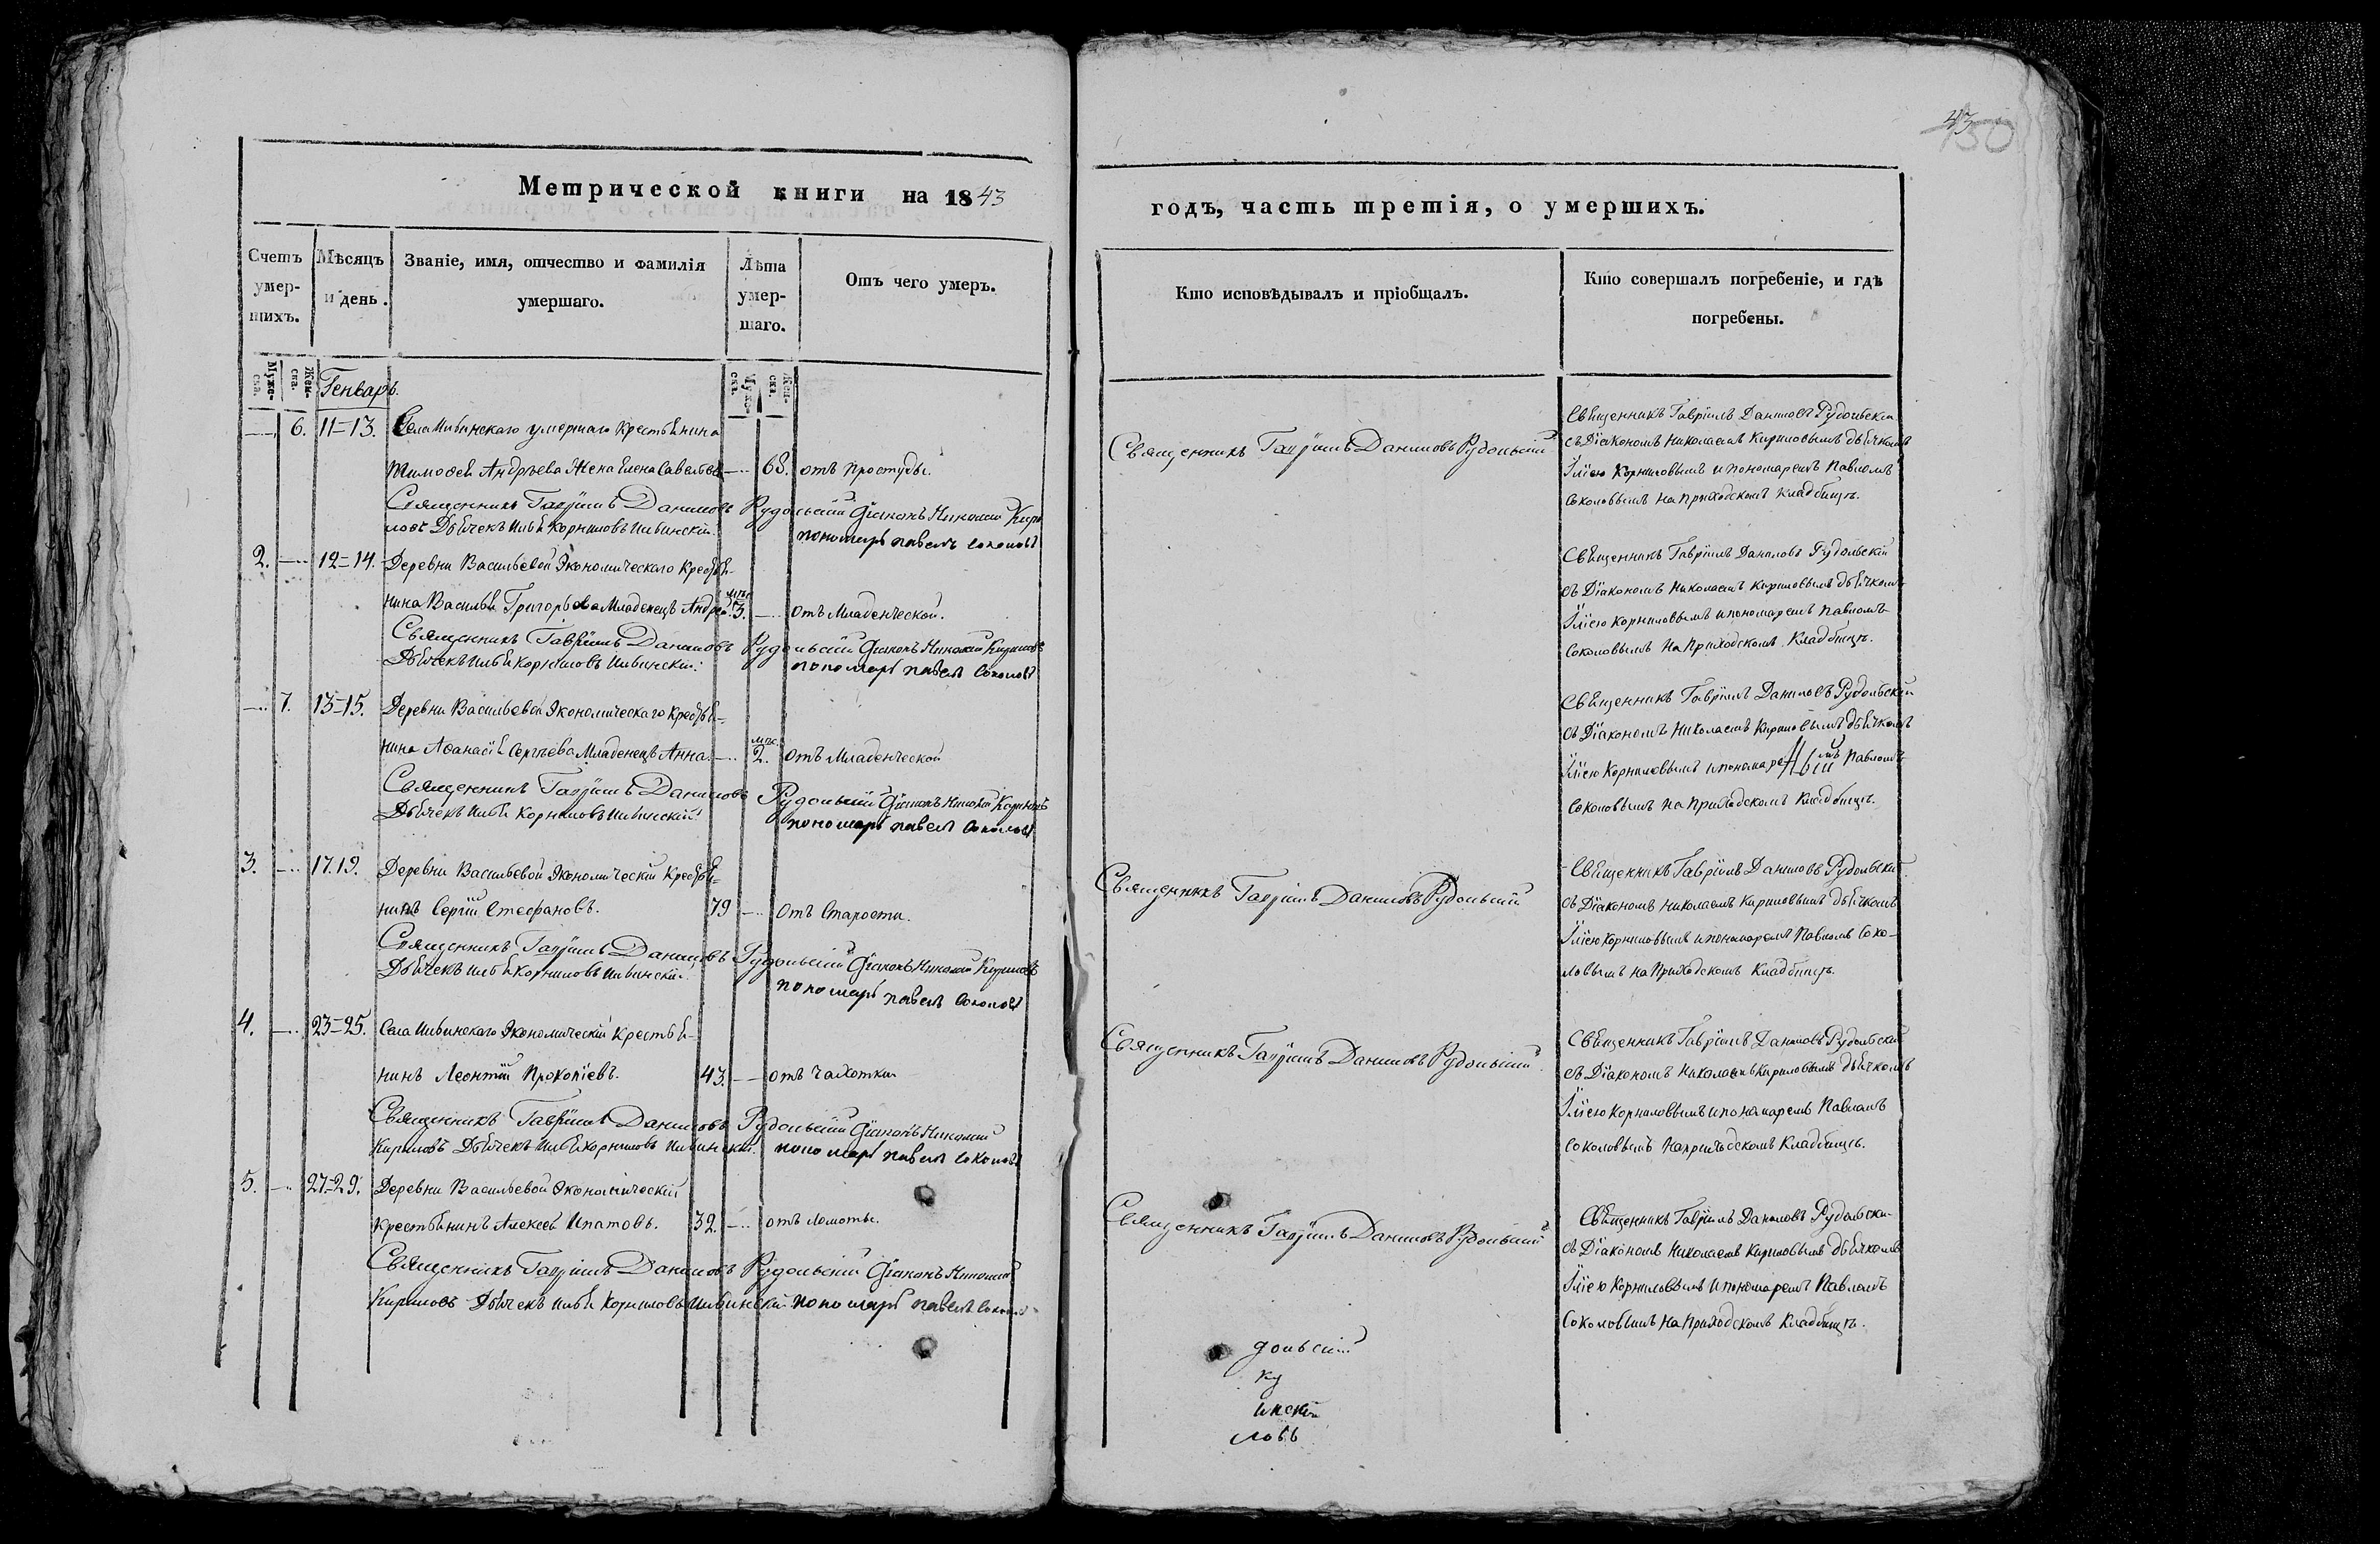 43
150
Метрической книги на 1843
годъ, часть третія, о умершихъ.
Счетъ умер-шихъ.
Мѣсяцъ и день.
Званіе, имя, отчество и фамилія умершаго.
Лѣта умер-шаго.
Отъ чего умеръ.
Кто исповѣдывалъ и пріобщалъ.
Кто совершалъ погребеніе, и гдѣ погребены.
Муже-ска.
Жен-ска.
Генварь.
Муже-ска.
Жен-ска.
6. 11-13. Села Ильинскаго умершаго крестьянина
Тимофея Андреева жена Елена Савельева 68. отъ простуды.
Священникъ Гавріилъ Даниловъ Рудольскій Діаконъ Николай Кири
ловъ Дьячекъ Илья Корниловъ Ильинскій.
пономарь Павелъ Соколовъ
Священникъ Гавріилъ Даниловъ Рудольскій
Священникъ Гавріилъ Даниловъ Рудольскій
съ Діакономъ Николаемъ Кириловымъ дьячкомъ
Іліею Корниловымъ и пономаремъ Павломъ
Соколовымъ на приходскомъ кладбищѣ.
2. 12-14. Деревни Васильевой Экономическаго крестья-
нина Василья Григорьева младенецъ Андрей 3. отъ младенческой.
Священникъ Гавріилъ Даниловъ Рудольскій Діаконъ Николай Кириловъ
Дьячекъ Илья Корниловъ Ильинскій.
пономарь Павелъ Соколовъ
Священникъ Гавріилъ Даниловъ Рудольскій
съ Діакономъ Николаемъ Кириловымъ дьячкомъ
Іліею Корниловымъ и пономаремъ Павломъ
Соколовымъ на приходскомъ кладбищѣ.
7. 13-15. Деревни Васильевой Экономическаго крестья-
нина Афанасія Сергѣева младенецъ Анна 2. отъ младенческой
Священникъ Гавріилъ Даниловъ Рудольскій Діаконъ Николай Кириловъ
Дьячекъ Илья Корниловъ Ильинскій
пономарь Павелъ Соколовъ
Священникъ Гавріилъ Даниловъ Рудольскій
съ Діакономъ Николаемъ Кириловымъ дьячкомъ
Іліею Корниловымъ и пономаремъ Павломъ
Соколовымъ на приходскомъ кладбищѣ.
3. 17.19. Деревни Васильевой Экономическій крестья-
нинъ Сергій Стефановъ. 79 отъ старости.
Священникъ Гавріилъ Даниловъ Рудольскій Діаконъ Николай Кириловъ
Дьячекъ Илья Корниловъ Ильинскій.
пономарь Павелъ Соколовъ
Священникъ Гавріилъ Даниловъ Рудольскій
Священникъ Гавріилъ Даниловъ Рудольскій
съ Діакономъ Николаемъ Кириловымъ дьячкомъ
Іліею Корниловымъ и пономаремъ Павломъ Соко-
ловымъ на приходскомъ кладбищѣ.
4. 23-25. Села Ильинскаго Экономическій крестья-
нинъ Леонтій Прокопіевъ. 43. отъ чахотки
Священникъ Гавріилъ Даниловъ Рудольскій Діаконъ Николай
Кириловъ Дьячекъ Илья Корниловъ Ильинскій. пономарь Павелъ Соколовъ
Священникъ Гавріилъ Даниловъ Рудольскій.
Священникъ Гавріилъ Даниловъ Рудольскій
съ Діакономъ Николаемъ Кириловымъ дьячкомъ
Іліею Корниловымъ и пономаремъ Павломъ
Соколовымъ на приходскомъ кладбищѣ.
5. 27-29. Деревни Васильевой Экономическій
крестьянинъ Алексей Ипатовъ. 32. отъ ломоты.
Священникъ Гавріилъ Даниловъ Рудольскій Діаконъ Николай
Кириловъ Дьячекъ Илья Корниловъ Ильинскій пономарь Павелъ Соколовъ
Священникъ Гавріилъ Даниловъ Рудольскій
Священникъ Гавріилъ Даниловъ Рудольскі-
съ Діакономъ Николаемъ Кириловымъ дьячкомъ
Іліею Корниловымъ и пономаремъ Павломъ
Соколовымъ на приходскомъ кладбищѣ.
дольскій
ку
инскій
ловъ